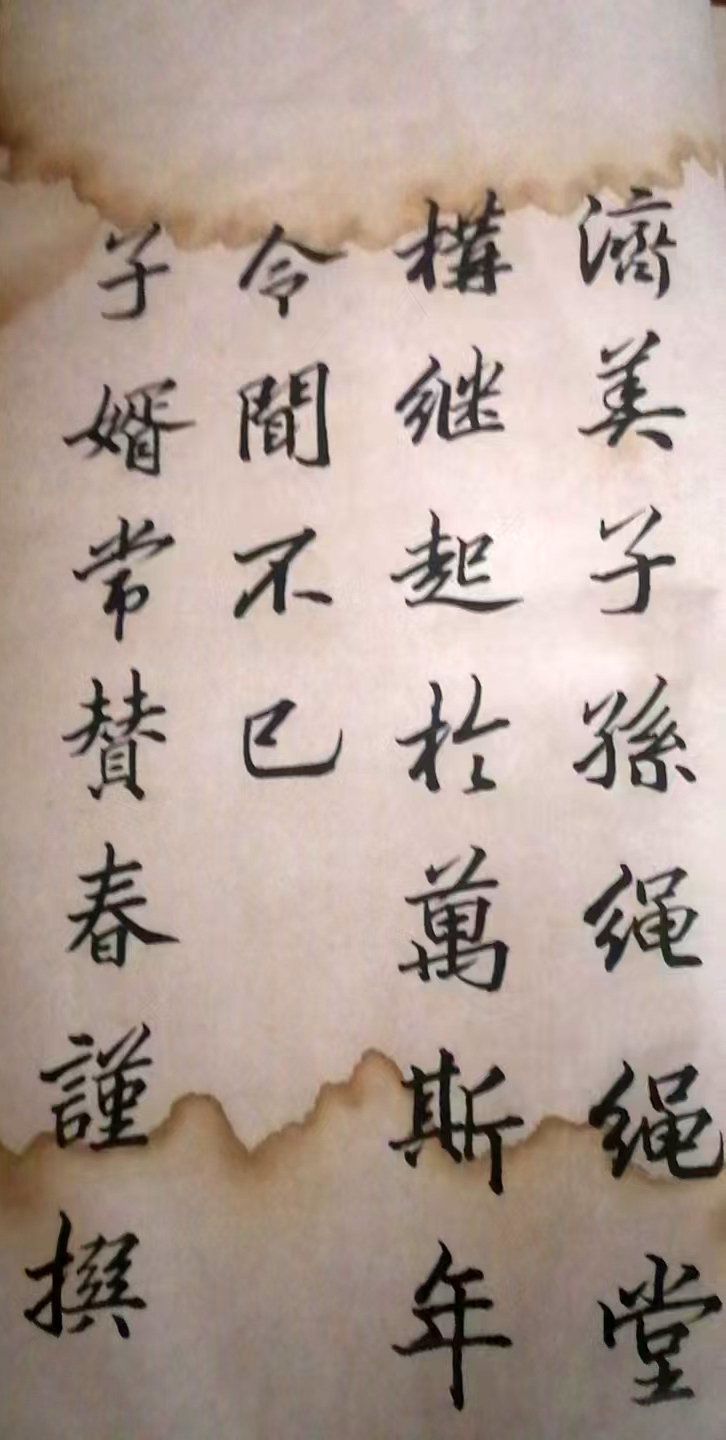 濟美子孫绳绳堂
構继起於萬斯年
令聞不已
子婿常賛春謹撰